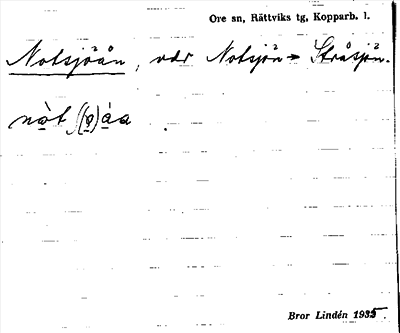 Ore sn, Rättviks tg, Kopparb. l.
Notsjöån, vdr Notsjön → Stråsjön.
nòt ʃ(ø)áa
Bror Lindén 1935.